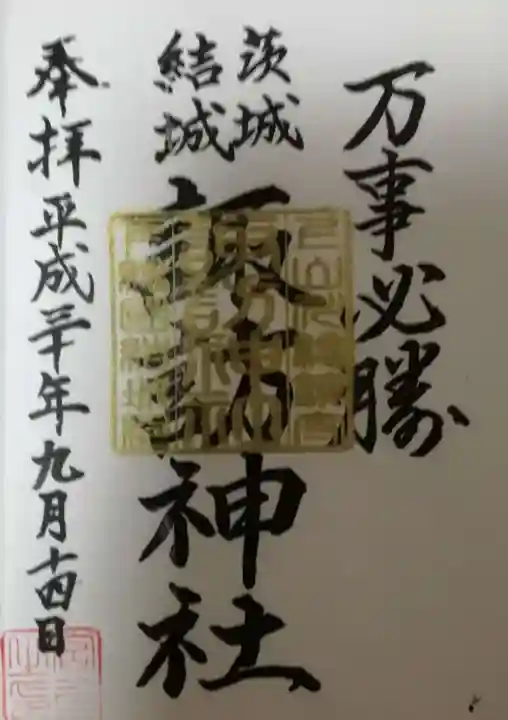 万事必勝
茨城
結城
諏訪神社
奉拝平成三十年九月十四日